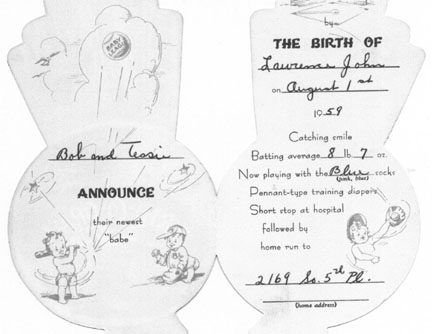 BABY
LEAGUE
Bob and Tessie
ANNOUNCE
their newest
"babe"
by
THE BIRTH OF
Lawrence John
on August 1st
1959
Catching smile
Batting average 8 lb 7 oz.
Now playing with the Blue socks
(pink, blue)
Pennant-type training diapers
Short stop at hospital
followed by
home run to
2169 So. 5th Pl.
(home address)